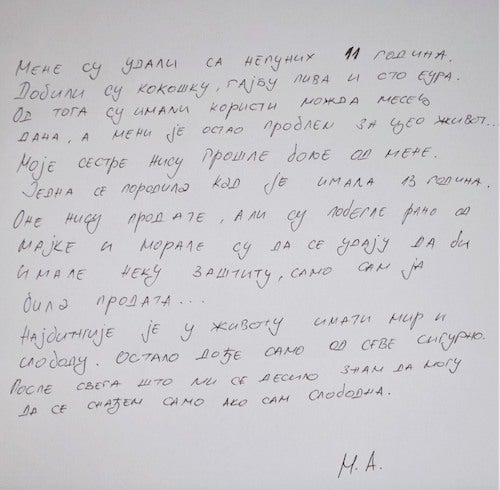 Мене су удали са непуних 11 година.
Добили су кокошку, гајбу пива и сто еура.
Од тога су имали користи можда месец
дана, а мени је остао проблем за цео живот..
Моје сестре нису прошле боље од мене.
Једна се породила кад је имала 13 година.
Оне нису продате, али су побегле рано од
мајке и морале су да се удају да би
имале неку заштиту, само сам ја
била продата...
Најбитније је у животу имати мир и
слободу. Остало дође само од себе сигурно.
После свега што ми се десило знам да могу
да се снађем само ако сам слободна.
М.А.